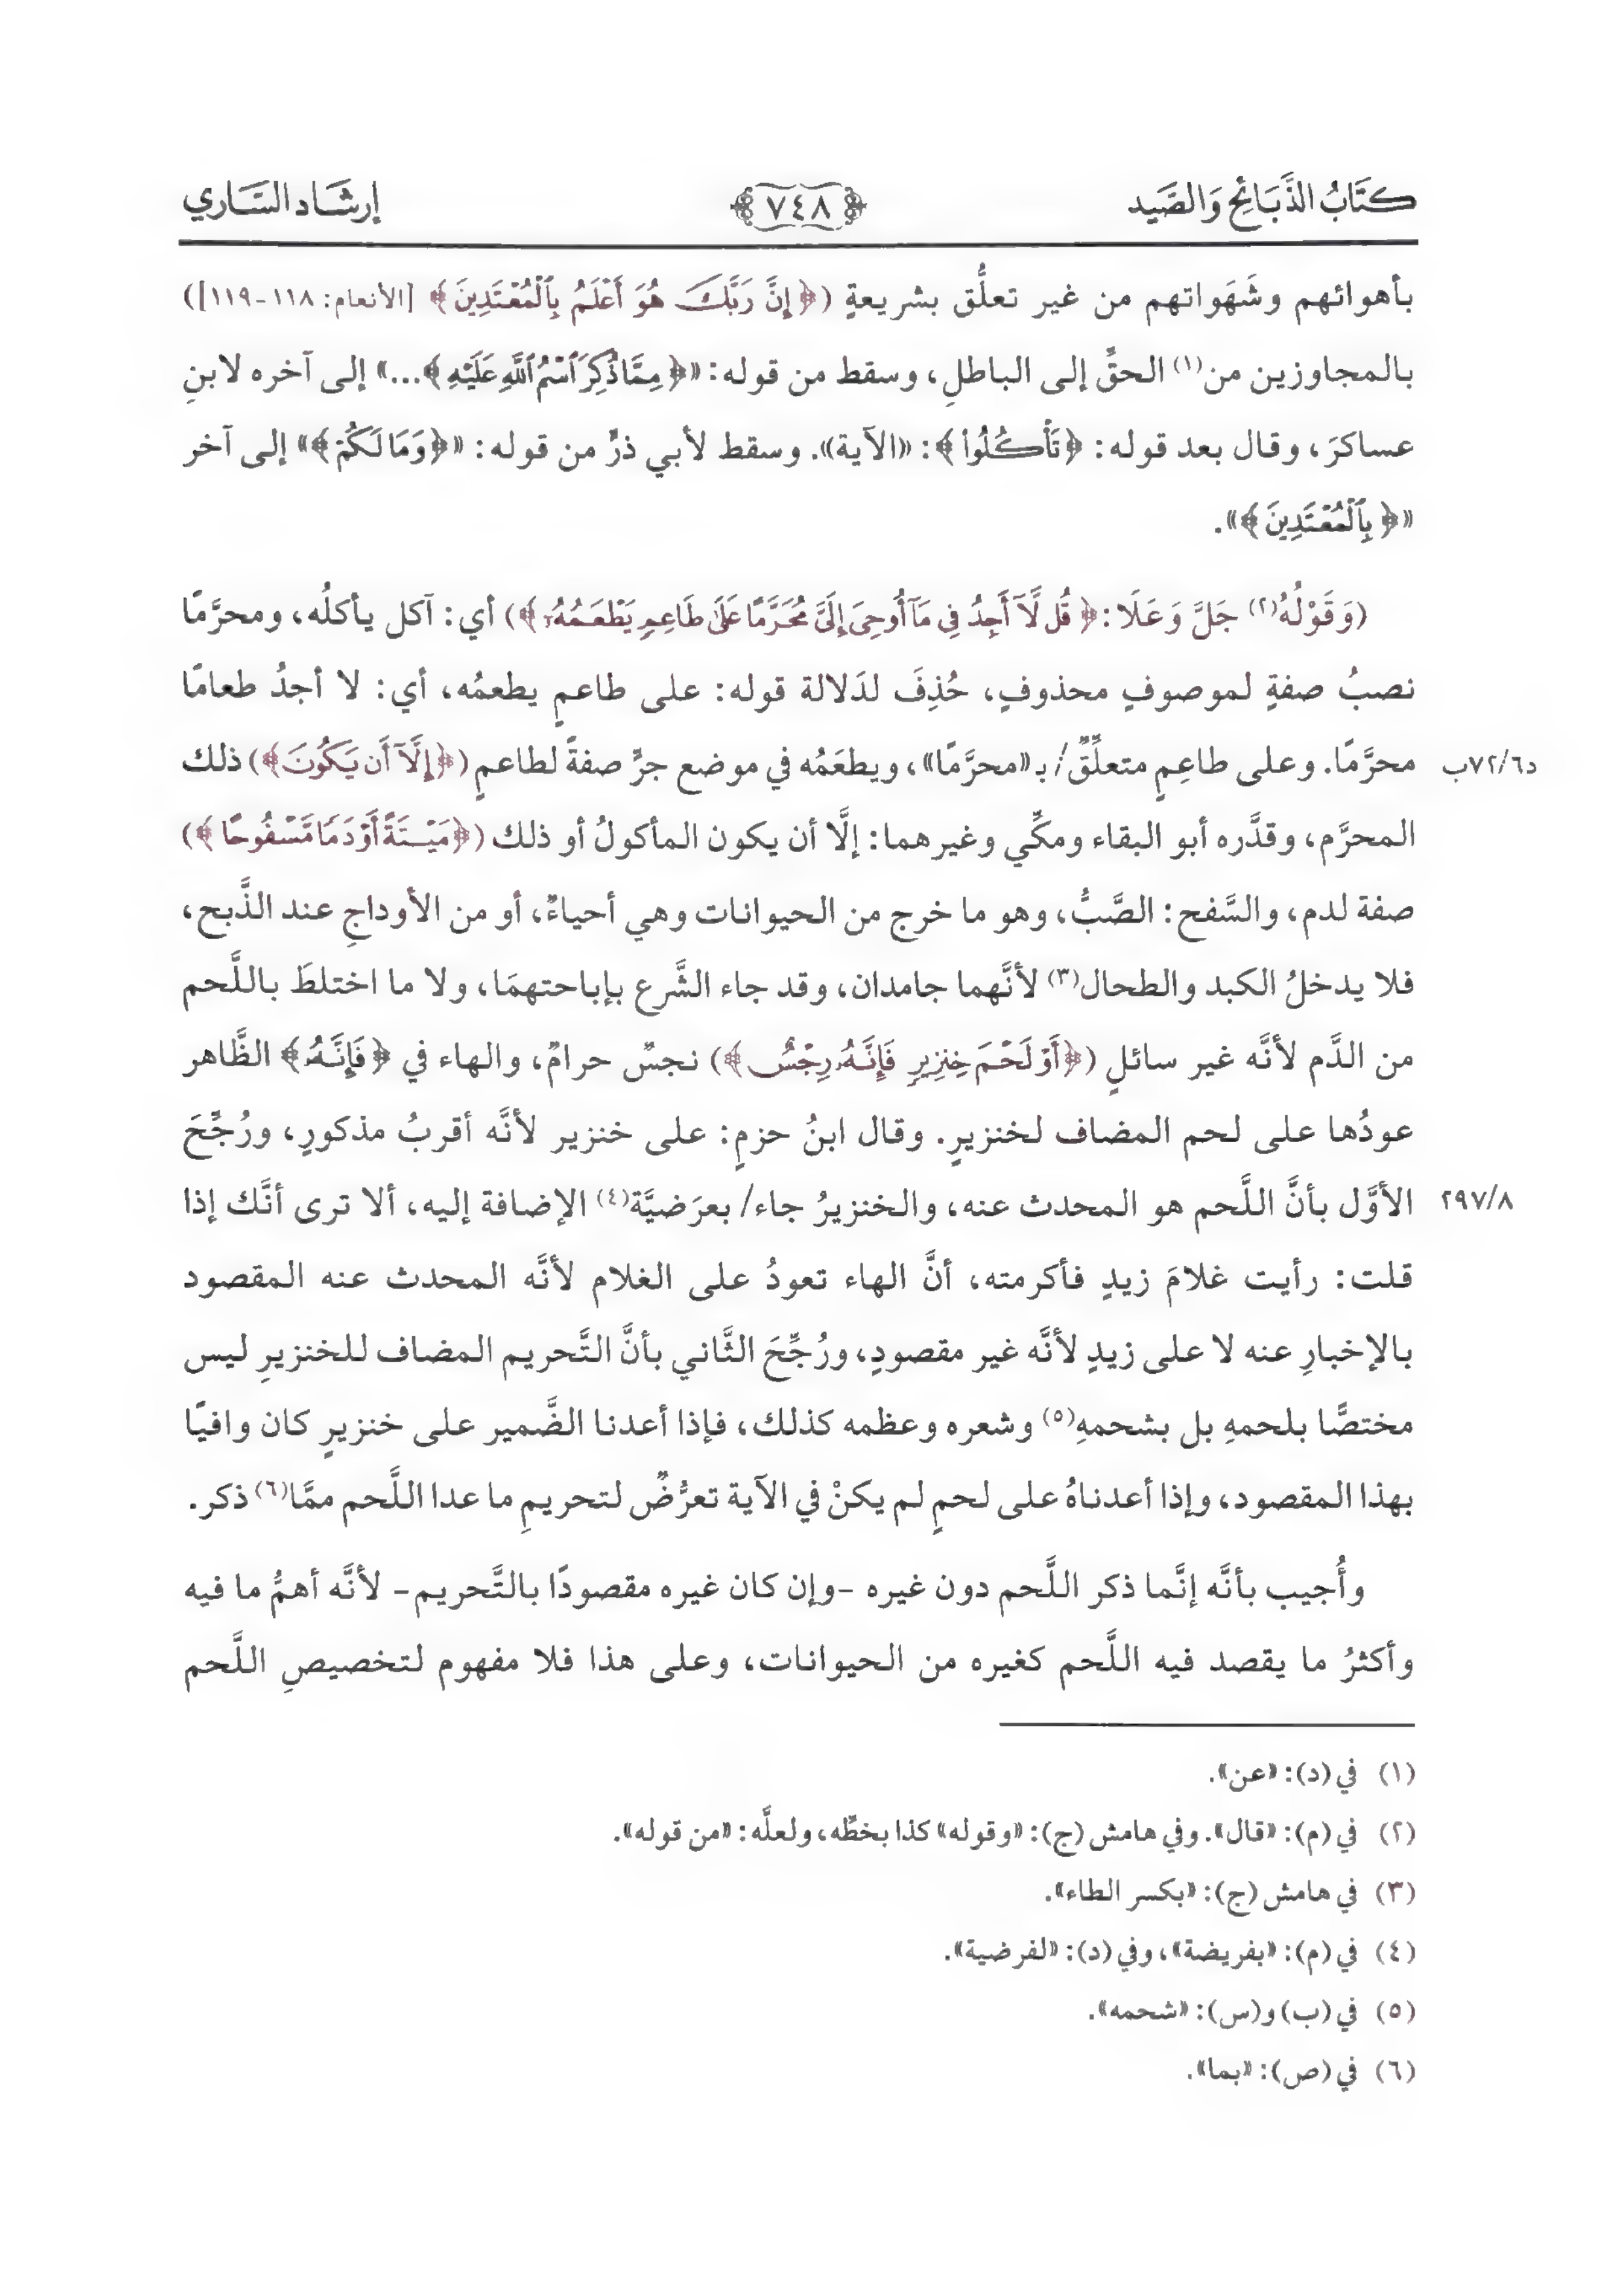 كتَابُ الذَّبَائِحِ وَالصَّيد ٧٤٨ إرشَاد السَّاري
بأهوائهم وشَهَواتهم من غير تعلُّق بشريعةٍ (﴿إِنَّ رَبَّكَ هُوَ أَعْلَمُ بِٱلْمُعْتَدِينَ﴾ [الأنعام: ١١٨-١١٩])
بالمجاوزين من(١) الحقِّ إلى الباطلِ، وسقط من قوله: «﴿مِمَّا ذُكِرَ ٱسْمُ ٱللَّهِ عَلَيْهِ﴾...» إلى آخره لابنِ
عساكرَ، وقال بعد قوله: ﴿تَأْكُلُوا۟﴾: «الآية». وسقط لأبي ذرٍّ من قوله: «﴿وَمَا لَكُمْ﴾» إلى آخر
«﴿بِٱلْمُعْتَدِينَ﴾».
(وَقَوْلُهُ(٢) جَلَّ وَعَلَا: ﴿قُل لَّآ أَجِدُ فِى مَآ أُوحِىَ إِلَىَّ مُحَرَّمًا عَلَىٰ طَاعِمٍ يَطْعَمُهُۥٓ﴾) أي: آكل يأكلُه، ومحرَّمًا
نصبُ صفةٍ لموصوفٍ محذوفٍ، حُذِفَ لدَلالة قوله: على طاعمٍ يطعمُه، أي: لا أجدُ طعامًا
محرَّمًا. وعلى طاعِمٍ متعلِّقٌ/ بـ «محرَّمًا»، ويطعَمُه في موضع جرٍّ صفةً لطاعمٍ (﴿إِلَّآ أَن يَكُونَ﴾) ذلك د٧٢/٦ب
المحرَّم، وقدَّره أبو البقاء ومكِّي وغيرهما: إلَّا أن يكون المأكولُ أو ذلك (﴿مَيْتَةً أَوْ دَمًا مَّسْفُوحًا﴾)
صفة لدم، والسَّفح: الصَّبُّ، وهو ما خرج من الحيوانات وهي أحياءٌ، أو من الأوداجِ عند الذَّبح،
فلا يدخلُ الكبد والطحال(٣) لأنَّهما جامدان، وقد جاء الشَّرع بإباحتهمَا، ولا ما اختلطَ باللَّحم
من الدَّم لأنَّه غير سائلٍ (﴿أَوْ لَحْمَ خِنزِيرٍ فَإِنَّهُۥ رِجْسٌ﴾) نجسٌ حرامٌ، والهاء في ﴿فَإِنَّهُۥ﴾ الظَّاهر
عودُها على لحم المضاف لخنزيرٍ. وقال ابنُ حزمٍ: على خنزير لأنَّه أقربُ مذكورٍ، ورُجِّحَ
الأوَّل بأنَّ اللَّحم هو المحدث عنه، والخنزيرُ جاء/ بعرَضيَّة(٤) الإضافة إليه، ألا ترى أنَّك إذا ٢٩٧/٨
قلت: رأيت غلامَ زيدٍ فأكرمته، أنَّ الهاء تعودُ على الغلام لأنَّه المحدث عنه المقصود
بالإخبارِ عنه لا على زيدٍ لأنَّه غير مقصودٍ، ورُجِّحَ الثَّاني بأنَّ التَّحريم المضاف للخنزيرِ ليس
مختصًّا بلحمهِ بل بشحمهِ(٥) وشعره وعظمه كذلك، فإذا أعدنا الضَّمير على خنزيرٍ كان وافيًا
بهذا المقصود، وإذا أعدناهُ على لحمٍ لم يكنْ في الآية تعرُّضٌ لتحريمِ ما عدا اللَّحم ممَّا(٦) ذكر.
وأُجيب بأنَّه إنَّما ذكر اللَّحم دون غيره -وإن كان غيره مقصودًا بالتَّحريم- لأنَّه أهمُّ ما فيه
وأكثرُ ما يقصد فيه اللَّحم كغيره من الحيوانات، وعلى هذا فلا مفهوم لتخصيصِ اللَّحم
(١) في (د): «عن».
(٢) في (م): «قال». وفي هامش (ج): «وقوله» كذا بخطِّه، ولعلَّه: «من قوله».
(٣) في هامش (ج): «بكسر الطاء».
(٤) في (م): «بفريضة»، وفي (د): «لفرضية».
(٥) في (ب) و(س): «شحمه».
(٦) في (ص): «بما».